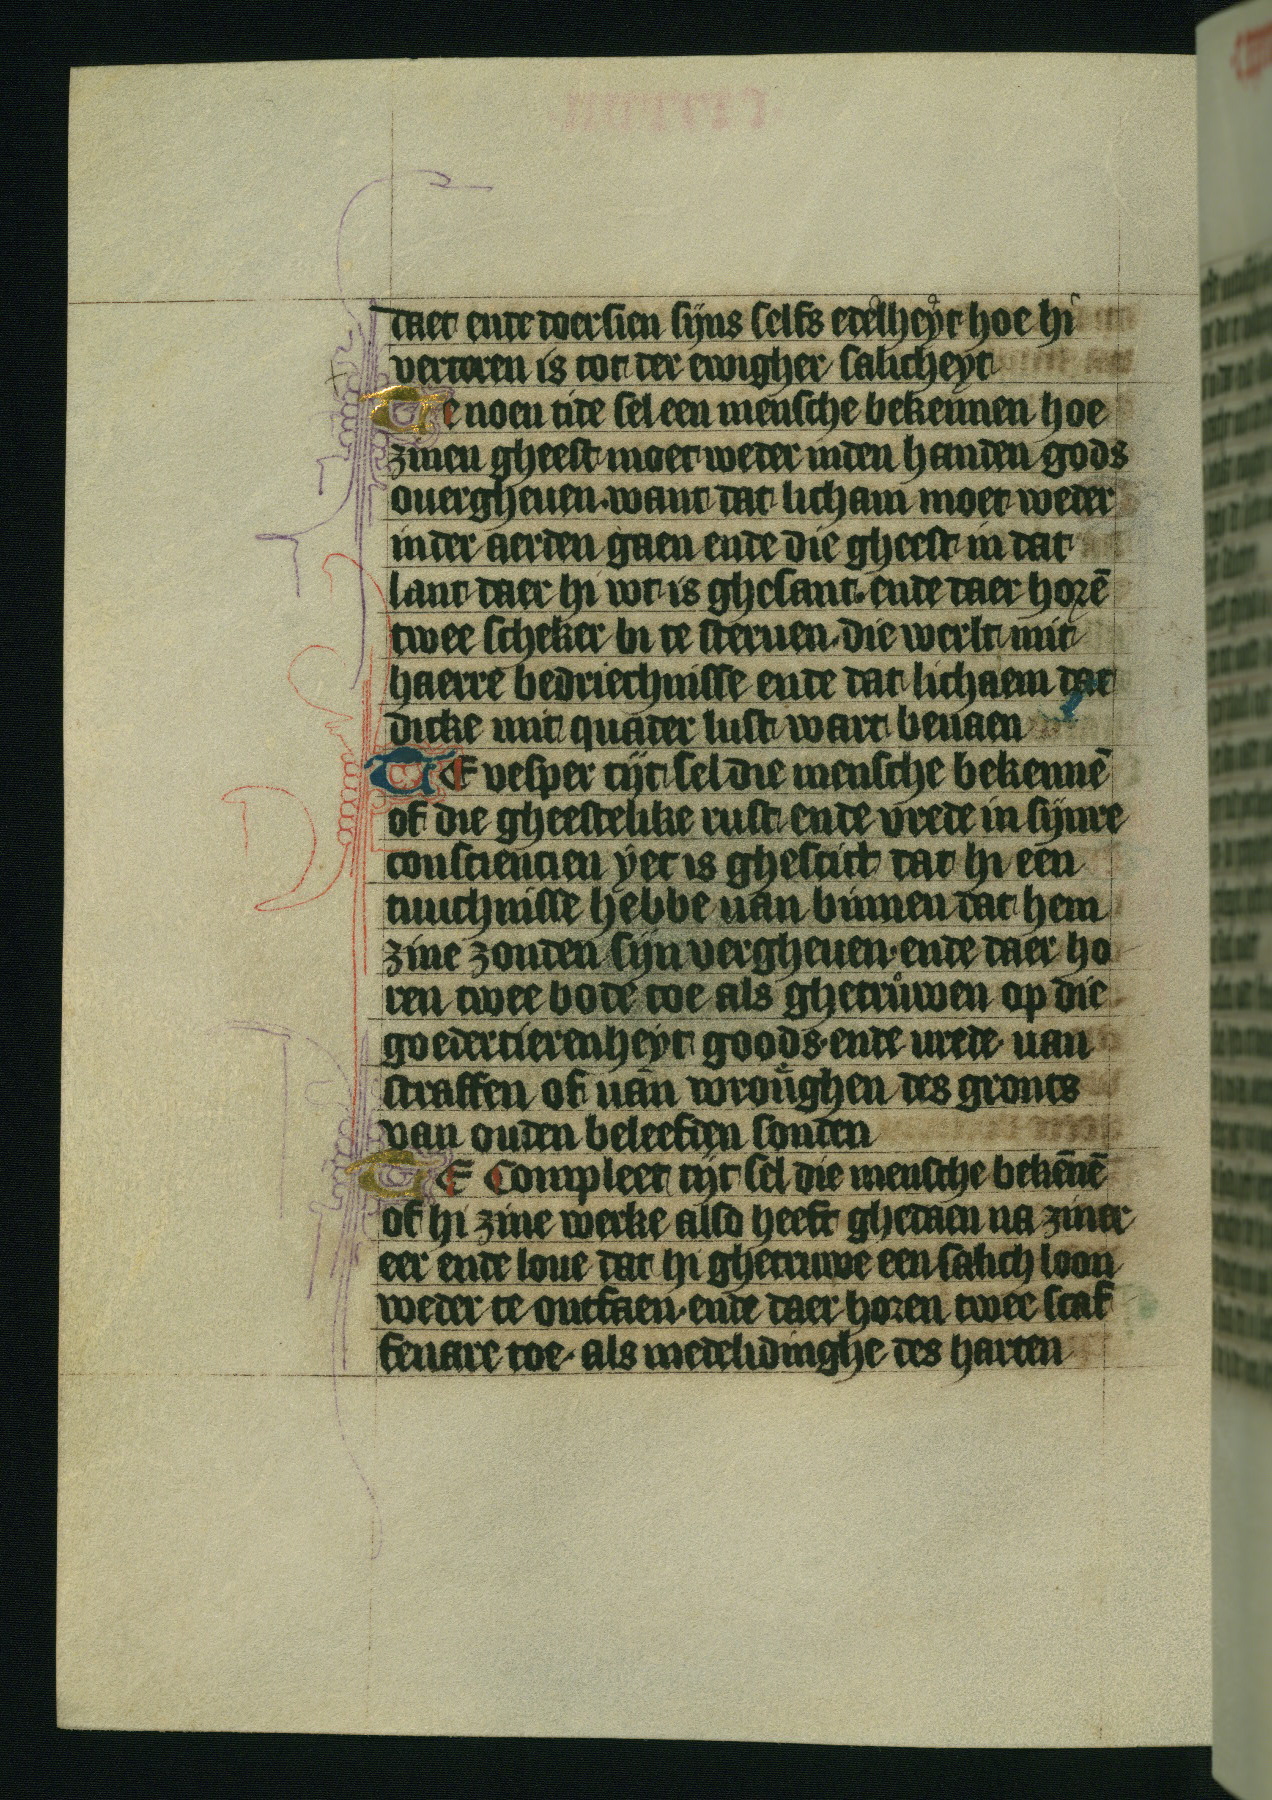 daer ende doersien sijns selfs edelheyt hoe hi
vercoren is tot der ewigher salicheyt
Te noen tide sel een mensche bekennen hoe
zinen gheest moet weder inden handen gods
ouergheuen. want dat licham moet weder
inder aerden gaen ende die gheest in dat
lant daer hi wt is ghesant. ende daer horē
twee scheker bi te steruen. die werlt mit
haerre bedriechnisse ende dat lichaem dat
dicke mit quader lust wart beuaen
TE vesper tijt sel die mensche bekennē
of die gheestelike rust ende vrede in sijnre
consciencien yet is ghesticht dat hi een
tuuchnisse hebbe van binnen dat hem
zine zonden sijn vergheuen. ende daer ho
ren twee bode toe als ghetruwen op die
goedertierenheyt goods. ende vrede van
straffen of van wroughen des gronts
van ouden beleefden sonden
TE Compleet tijt sel die mensche bekēnē
of hi zine werke also heeft ghedaen na zinar
eer ende loue dat hi ghetruwe een salich loon
weder te ontfaen. ende daer horen twee scaf
fenare toe. als medelidinghe des harten